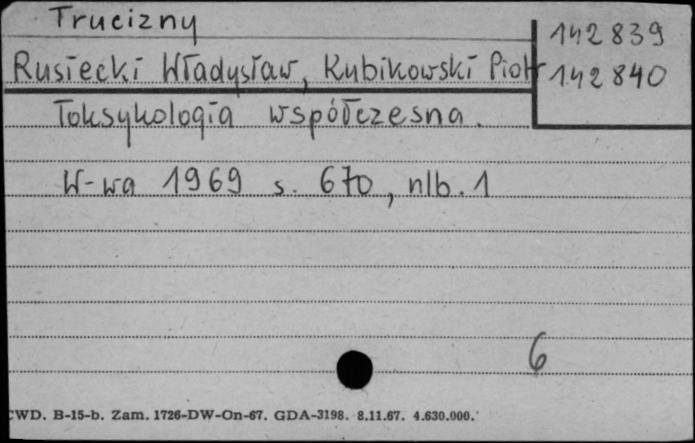 Trucizny
142 839
Rusiecki Władysław, Kubikowski Piotr
142 840
Toksykologia współczesna.
W-wa 1969 s. 670, nlb. 1
6
CWD. B-15-b. Zam. 1726-DW-On-67. GDA-3198. 8.11.67. 4.630.000.